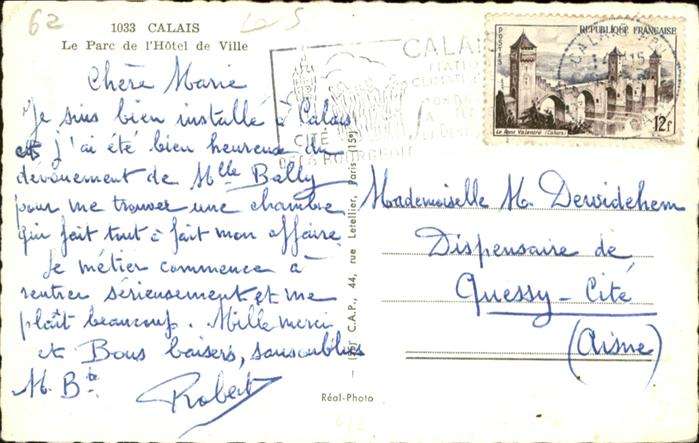 62
1033 CALAIS
Le Parc de l'Hôtel de Ville
Chère Marie
Je suis bien installé à Calais
et j'ai été bien heureux du
dévouement de Mlle Bally
pour me trouver une chambre
qui fait tout à fait mon affaire
Le métier commence à
rentrer sérieusement et me
plaît beaucoup. Mille merci
et Bons baisers, sans oublier
M. Bte
Robert
CALAIS
CITÉ
DES BOURGEOIS
POSTES
REPUBLIQUE FRANÇAISE
Le Pont Valentré (Cahors)
12f
C.A.P., 44, rue Letellier, Paris (15e)
Mademoiselle M. Dewidehem
Dispensaire de
Quessy-Cité
(Aisne)
Réal-Photo